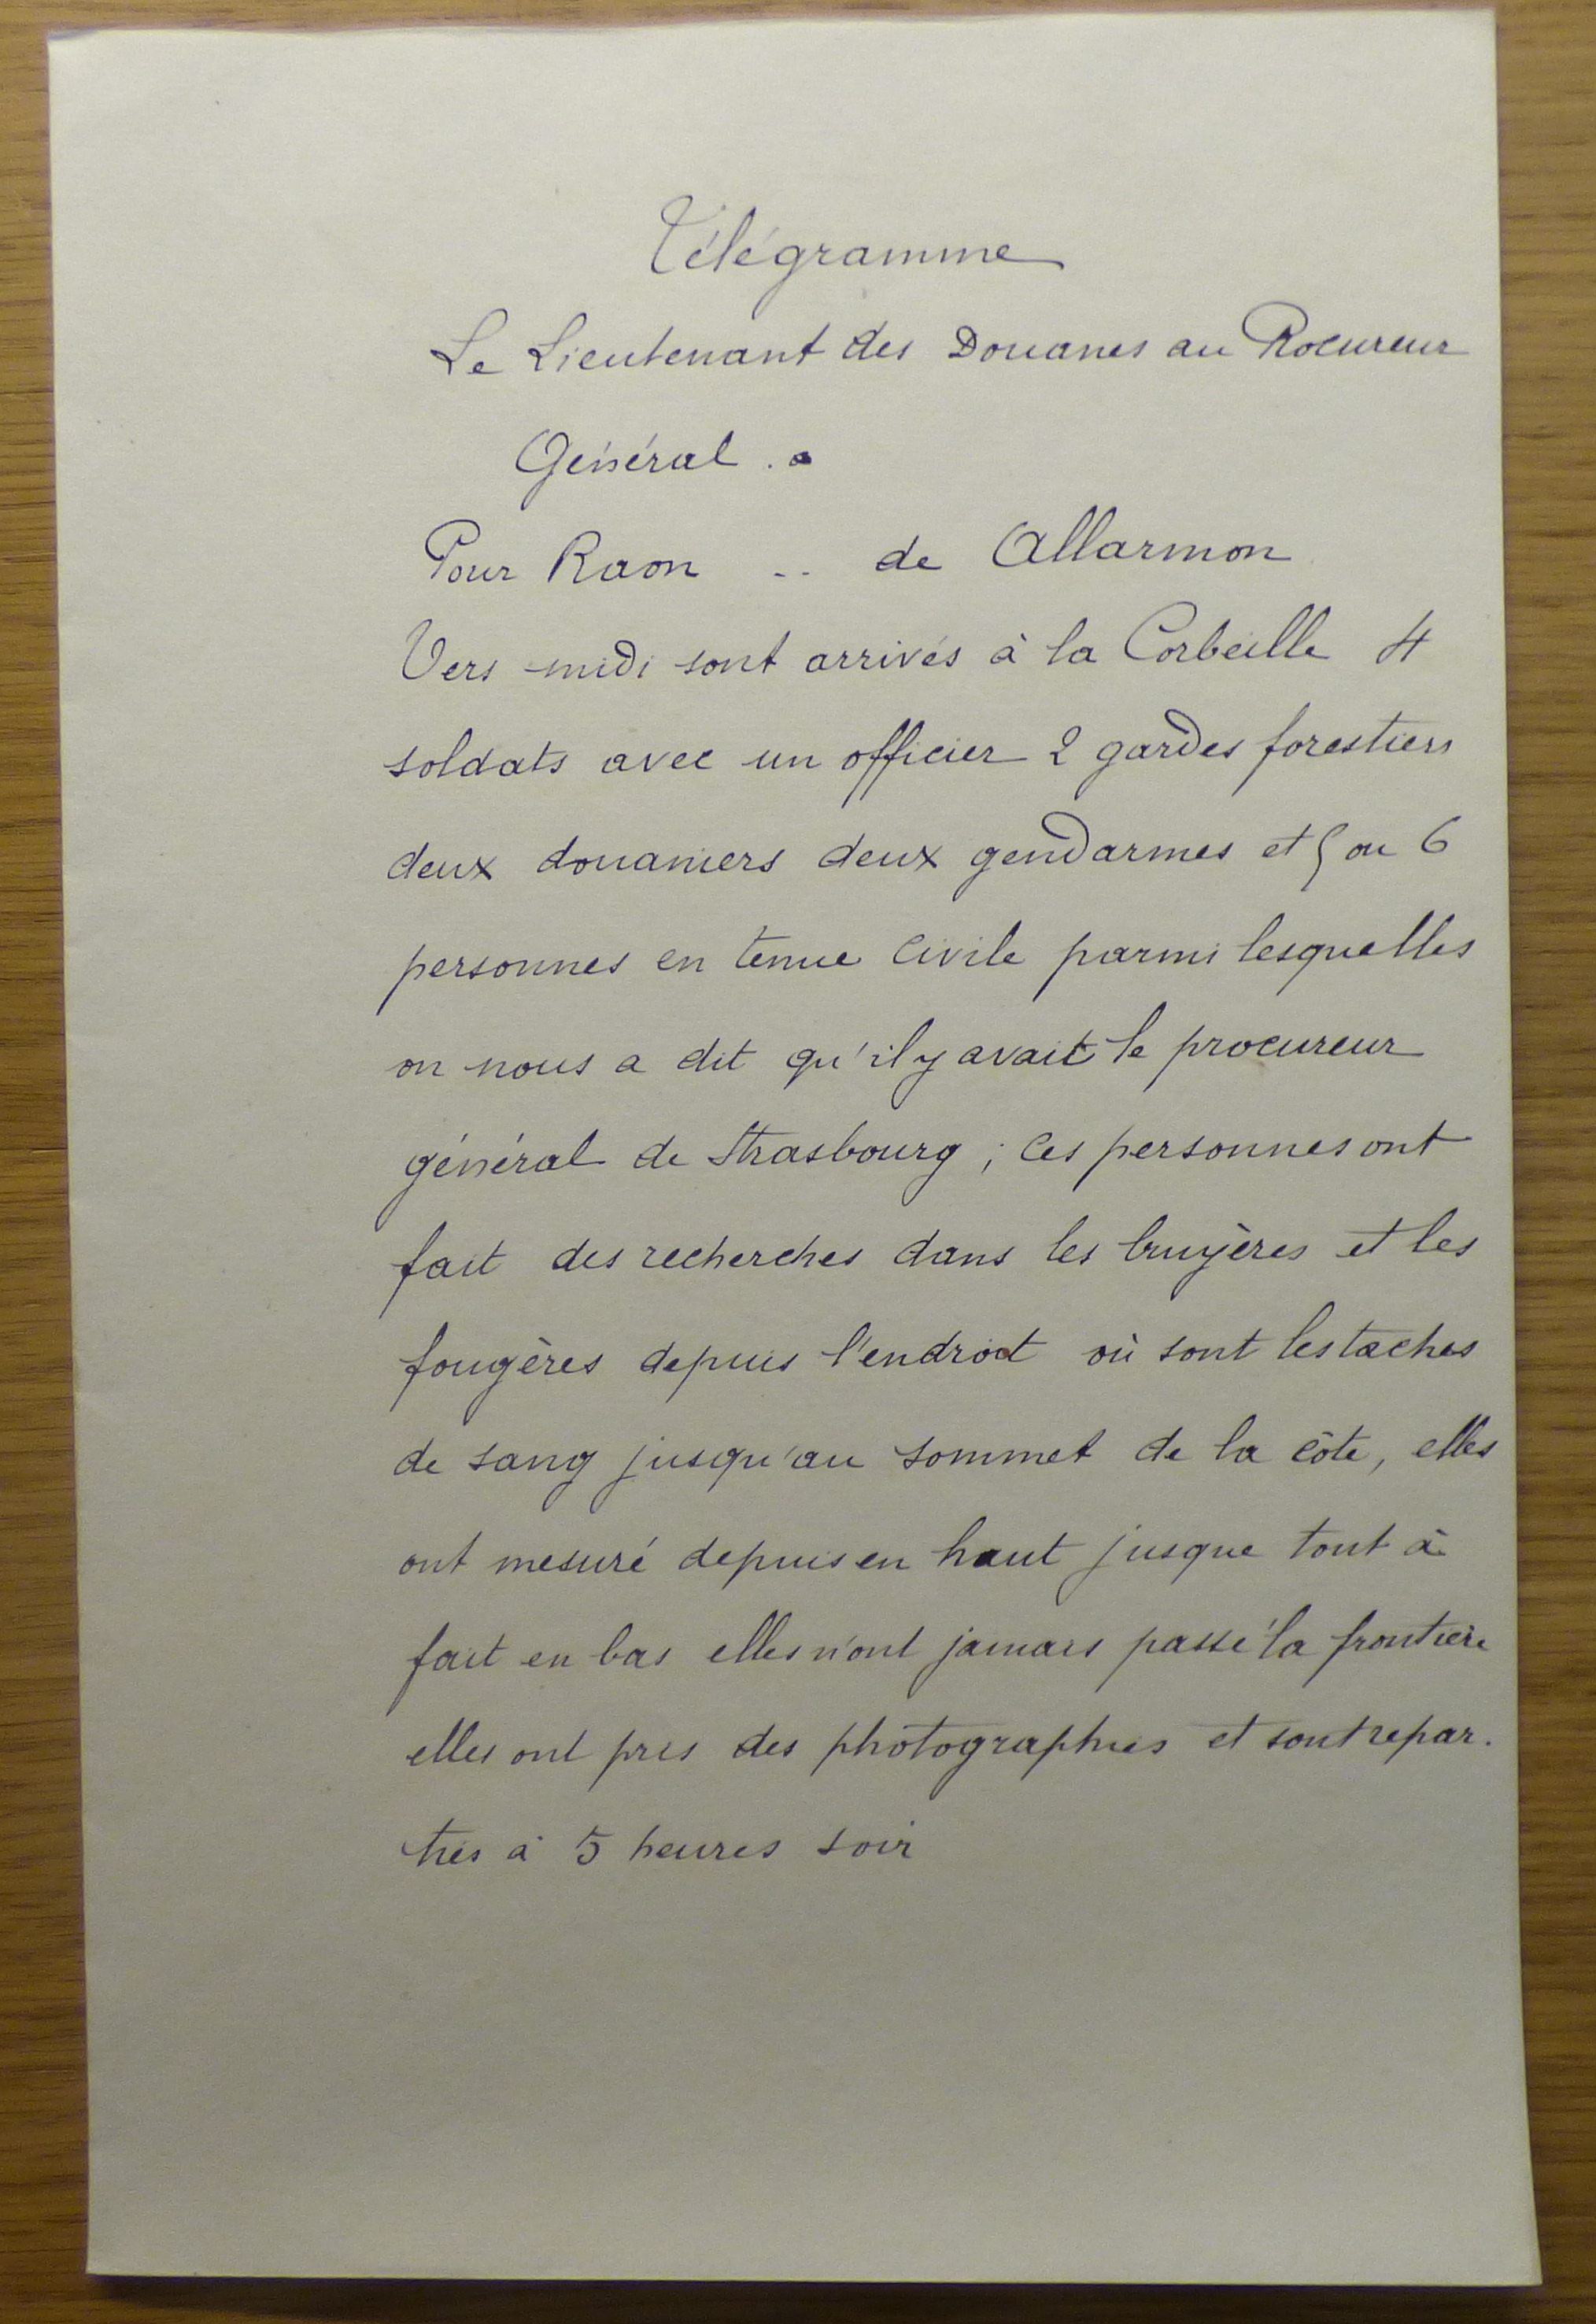 Télégramme
Le Lieutenant des Douanes au Procureur
Général .
Pour Raon .. de Allarmon
Vers midi sont arrivés à la Corbeille 4
soldats avec un officier 2 gardes forestiers
deux douaniers deux gendarmes et 5 ou 6
personnes en tenue civile parmi lesquelles
on nous a dit qu'il y avait le procureur
général de Strasbourg ; Ces personnes ont
fait des recherches dans les bruyères et les
fougères depuis l'endroit où sont les taches
de sang jusqu'au sommet de la côte, elles
ont mesuré depuis en haut jusque tout à
fait en bas elles n'ont jamais passé la frontière
elles ont pris des photographies et sont repar.
ties à 5 heures soir